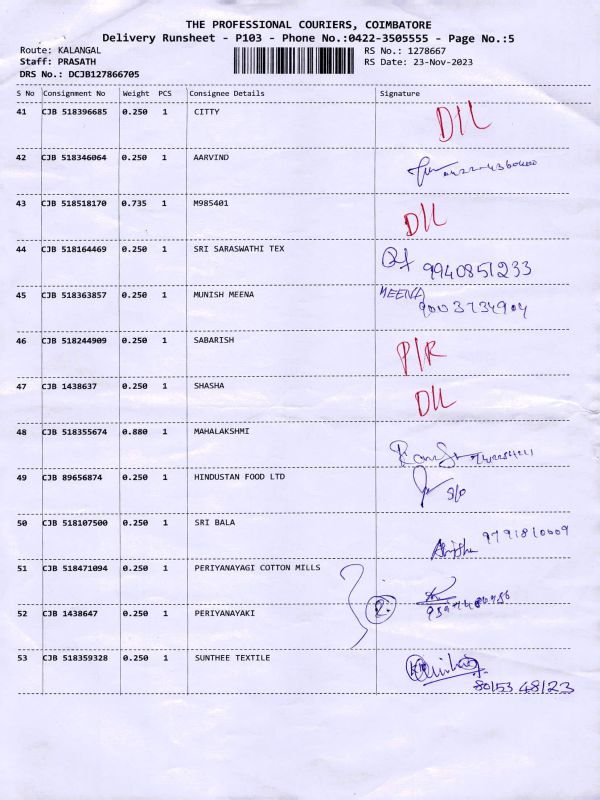 THE PROFESSIONAL COURIERS, COIMBATORE
Delivery Runsheet - P103 - Phone No.:0422-3505555 - Page No.:5
Route: KALANGAL RS No.: 1278667
Staff: PRASATH RS Date: 23-Nov-2023
DRS No.: DCJB127866705
S No Consignment No Weight PCS Consignee Details Signature
41 CJB 518396685 0.250 1 CITTY D/L
42 CJB 518346064 0.250 1 AARVIND
43 CJB 518518170 0.735 1 M985401 D/L
44 CJB 518164469 0.250 1 SRI SARASWATHI TEX 9940851233
45 CJB 518363857 0.250 1 MUNISH MEENA MEENA
9003734904
46 CJB 518244909 0.250 1 SABARISH P/R
47 CJB 1438637 0.250 1 SHASHA D/L
48 CJB 518355674 0.880 1 MAHALAKSHMI
49 CJB 89656874 0.250 1 HINDUSTAN FOOD LTD S/o
50 CJB 518107500 0.250 1 SRI BALA 9791810009
51 CJB 518471094 0.250 1 PERIYANAYAGI COTTON MILLS
52 CJB 1438647 0.250 1 PERIYANAYAKI
53 CJB 518359328 0.250 1 SUNTHEE TEXTILE
80153 48123